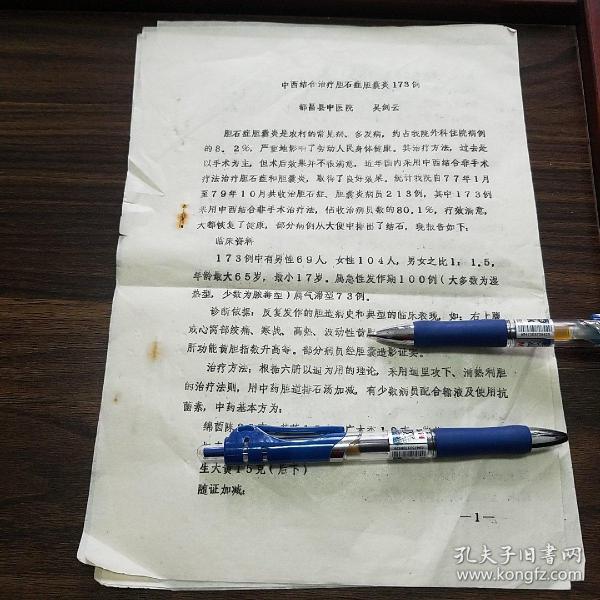 中西结合治疗胆石症胆囊炎173例
都昌县中医院 吴剑云
胆石症胆囊炎是农村的常见病、多发病,约占我院外科住院病例
的8.2%,严重地影响了劳动人民身体健康。其治疗方法,过去是
以手术为主,但术后效果并不很满意,近年国内采用中西结合非手术
疗法治疗胆石症和胆囊炎,取得了良好效果。统计我院自77年1月
至79年10月共收治胆石症、胆囊炎病员213例,其中173例
采用中西结合非手术治疗法,佔收治病员数的80.1%,疗效满意,
大都恢复了健康,部分病例从大便中排出了结石,现报告如下:
临床资料
173例中有男性69人,女性104人,男女之比1:1.5,
年龄最大65岁,最小17岁。属急性发作期100例(大多数为湿
热型,少数为脓毒型)属气滞型73例。
诊断依据:反复发作的胆道病史和典型的临床表现,如:右上腹
或心窝部绞痛、寒战、高热、波动性黄
肝功能黄胆指数升高等。部分病员经胆囊造影证实。
治疗方法:根据六腑以通为用的理论,采用通里攻下、清热利胆
的治疗法则,用中药胆道排石汤加减,有少数病员配合输液及使用抗
菌素,中药基本方为:
绵茵陈
生大黄15克(后下)
随证加减:
—1—
孔夫子旧书网
www.kongfz.com